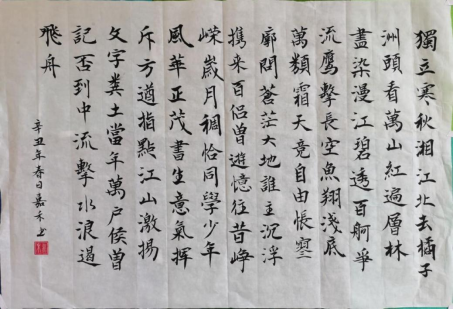 獨立寒秋湘江北去橘子
洲頭看萬山紅遍層林
盡染漫江碧透百舸爭
流鷹擊長空魚翔淺底
萬類霜天竞自由悵寥
廓問蒼茫大地誰主沉浮
携來百侣曾遊憶往昔崢
嶸歲月稠恰同學少年
風華正茂書生意氣揮
斥方遒指點江山激揚
文字糞土當年萬户侯曾
記否到中流擊水浪遏
飛舟
辛丑年春日嘉禾